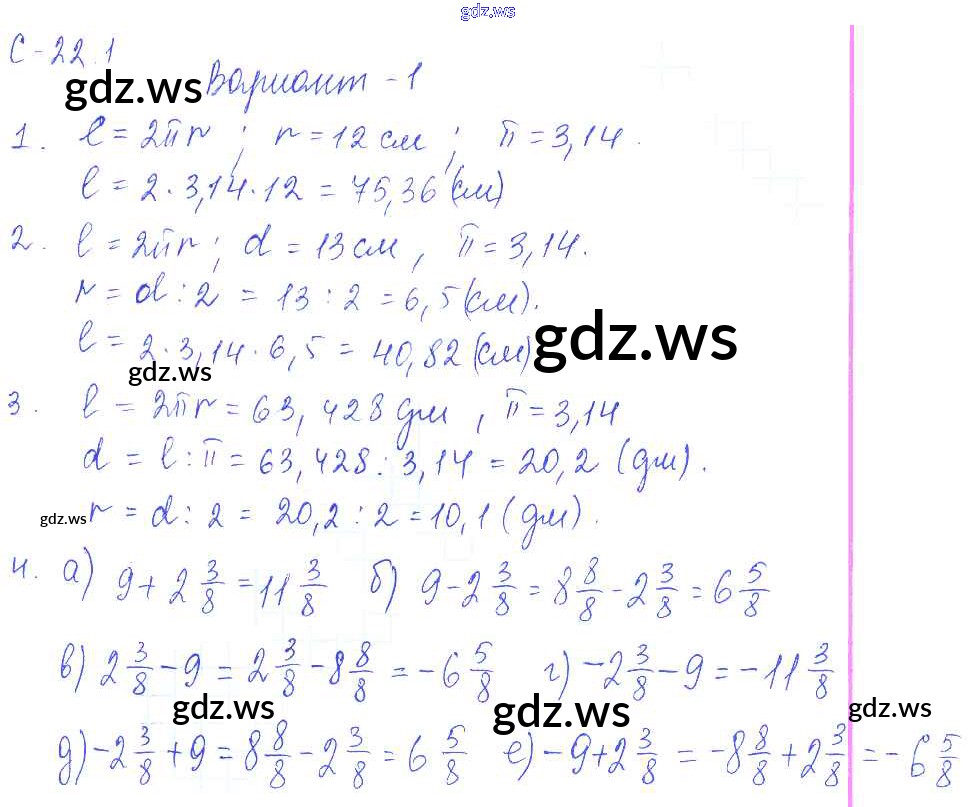 gdz.ws
С-22.1
gdz.ws Вариант - 1
1. l = 2πr ; r = 12 см ; π = 3,14.
l = 2 · 3,14 · 12 = 75,36 (см)
2. l = 2πr ; d = 13 см , π = 3,14.
r = d : 2 = 13 : 2 = 6,5 (см).
l = 2 · 3,14 · 6,5 = 40,82 (см) gdz.ws
gdz.ws
3. l = 2πr = 63,428 дм , π = 3,14
d = l : π = 63,428 : 3,14 = 20,2 (дм).
gdz.ws r = d : 2 = 20,2 : 2 = 10,1 (дм).
4. а) 9 + 2 3/8 = 11 3/8 б) 9 - 2 3/8 = 8 8/8 - 2 3/8 = 6 5/8
в) 2 3/8 - 9 = 2 3/8 - 8 8/8 = - 6 5/8 г) - 2 3/8 - 9 = - 11 3/8
gdz.ws gdz.ws gdz.ws
д) - 2 3/8 + 9 = 8 8/8 - 2 3/8 = 6 5/8 е) - 9 + 2 3/8 = - 8 8/8 + 2 3/8 = - 6 5/8